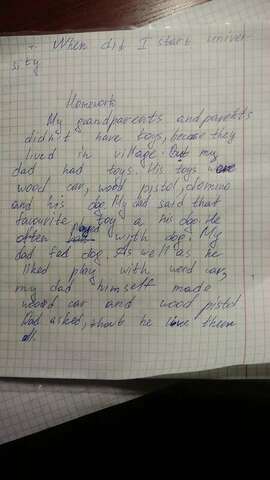 7. When did I start univer-
sity
Homework
My grandparents and parents
didn't have toys, because they
lived in village. But my
dad had toys. His toys were
wood car, wood pistol, domino
and his dog. My dad said that
favourite toy a his dog. He
often played with dog. My
dad fed dog. As well as he
liked play with wood car,
my dad himself made
wood car and wood pistol
Dad asked, that he loves them
all.